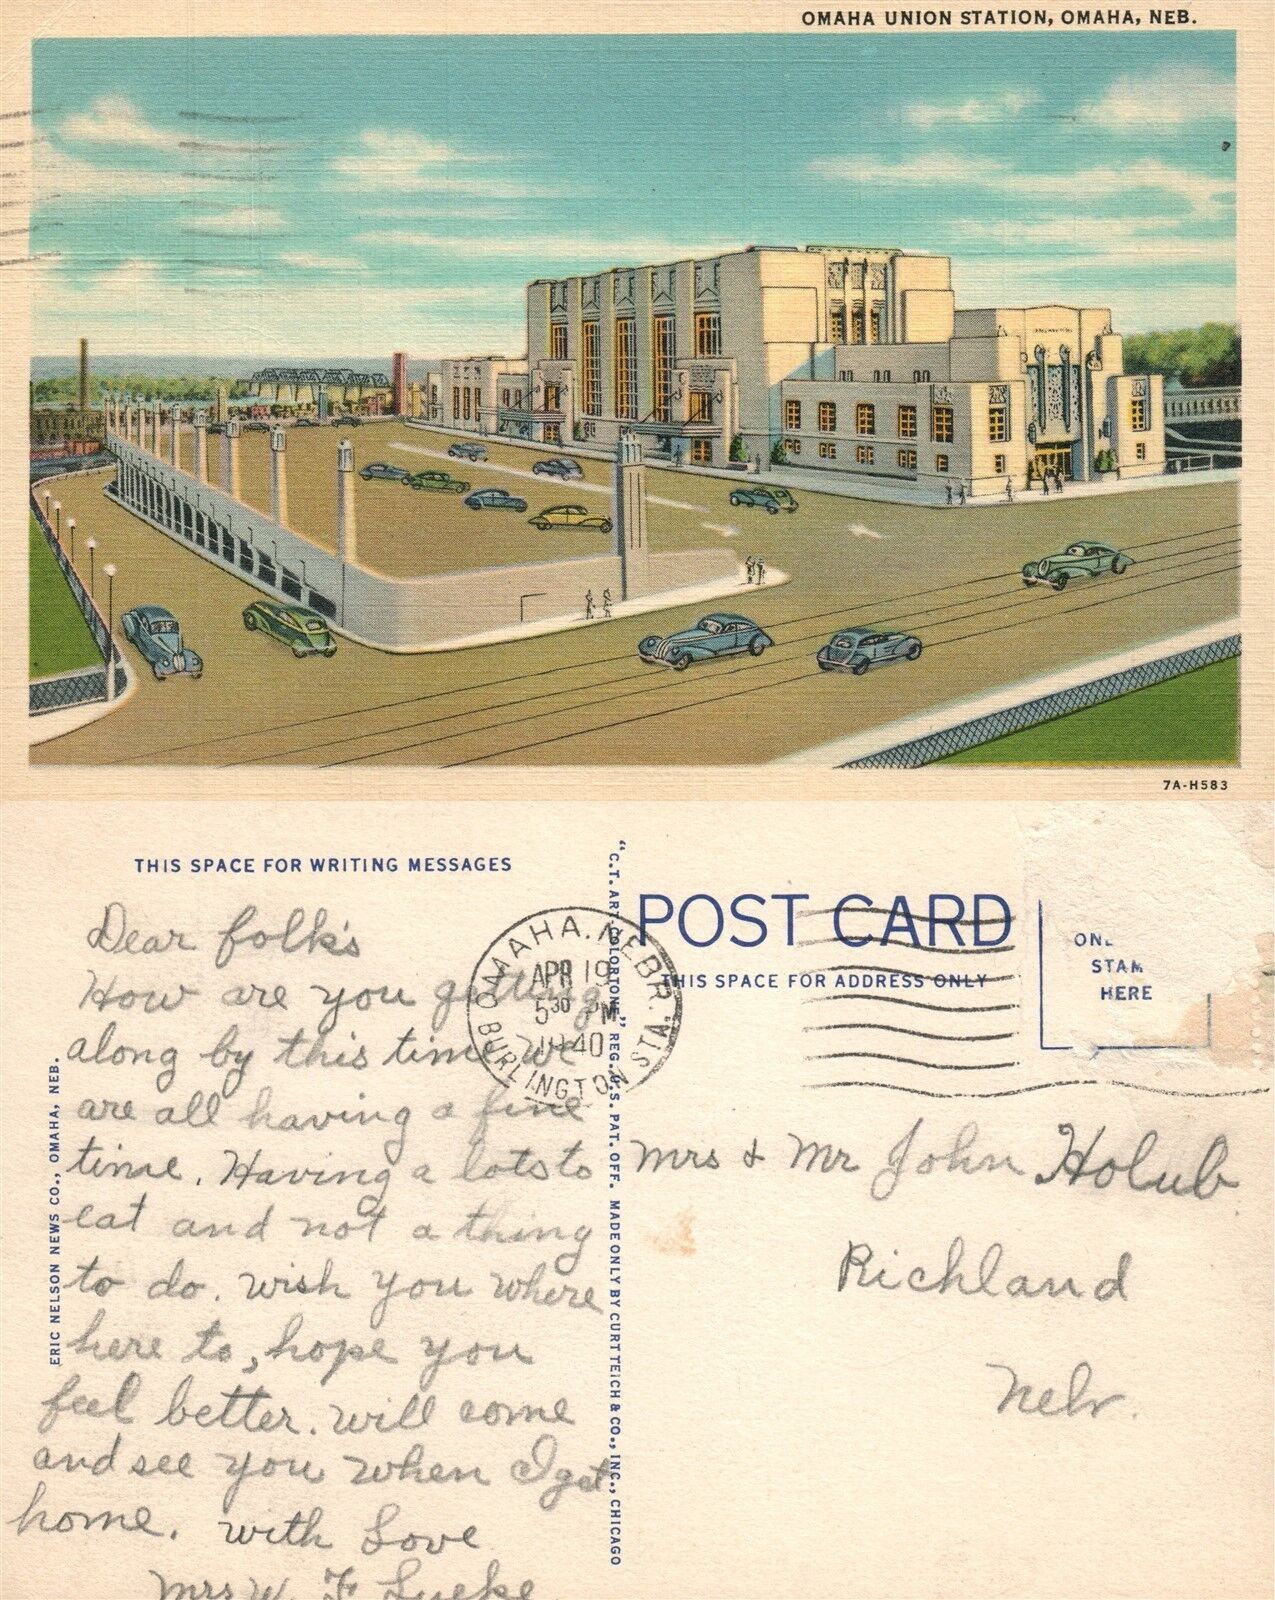 OMAHA UNION STATION, OMAHA, NEB.
7A-H583
THIS SPACE FOR WRITING MESSAGES
Dear folk's
How are you getting
along by this time we
are all having a fine
time. Having a lots to
eat and not a thing
to do. wish you where
here to, hope you
feel better. will come
and see you when I get
home. with Love
Mrs W. F Lueke
ERIC NELSON NEWS CO., OMAHA, NEB.
"C.T. ART-COLORTONE" REG. U.S. PAT. OFF. MADE ONLY BY CURT TEICH & CO., INC., CHICAGO
OMAHA. NEBR.
APR 19
5 30 PM
1940
BURLINGTON STA.
POST CARD
THIS SPACE FOR ADDRESS ONLY
STAM
HERE
Mrs & Mr John Holub
Richland
Nebr.